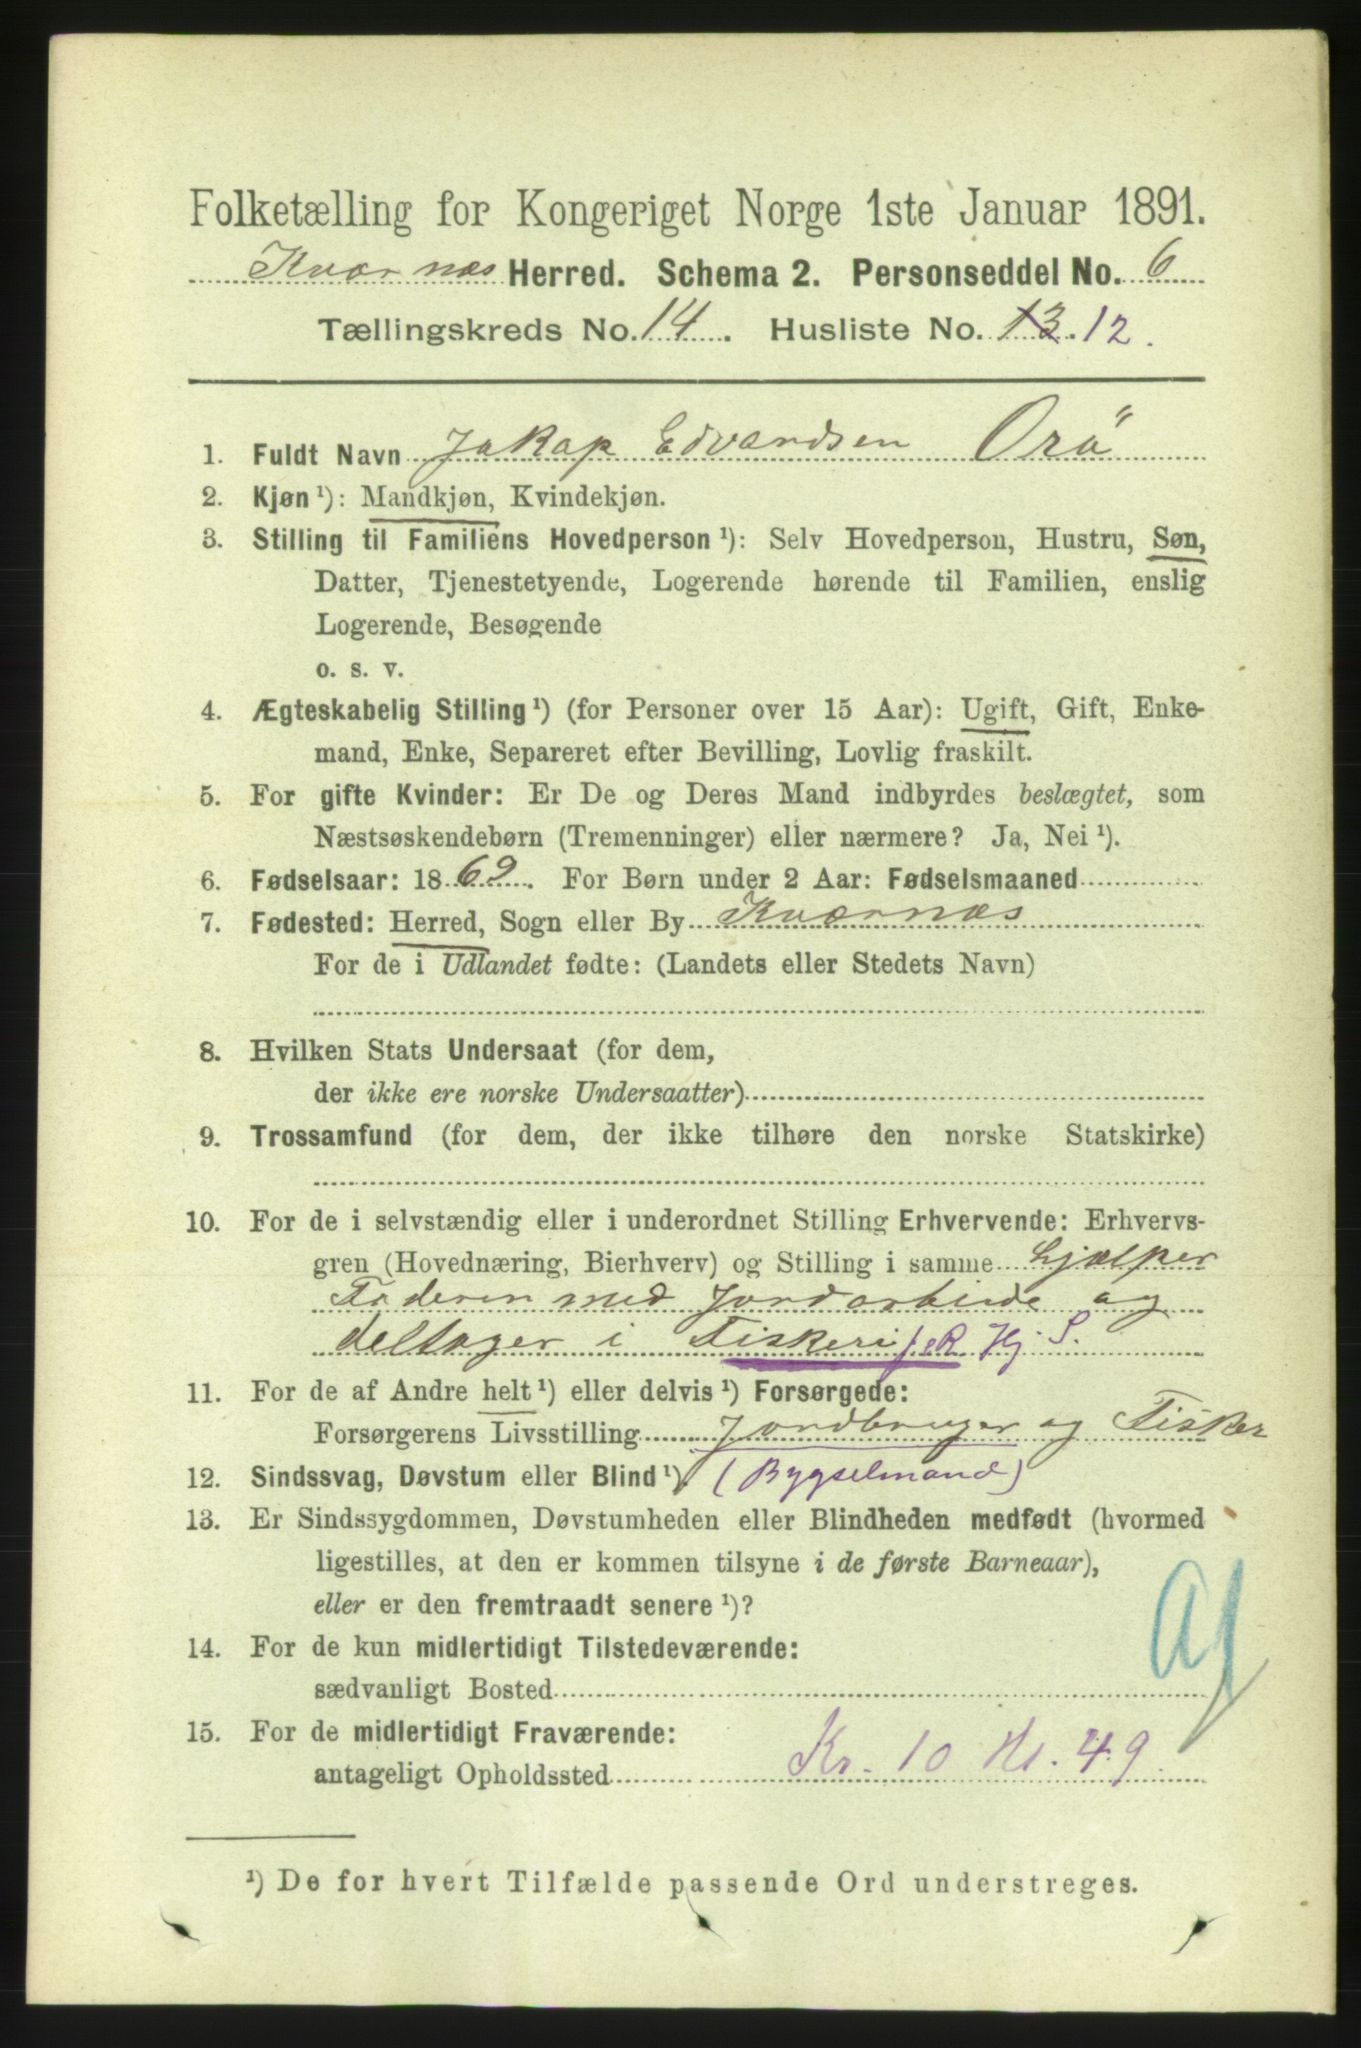 Folketælling for Kongeriget Norge 1ste Januar 1891.
Kværnæs Herred. Schema 2. Personseddel No. 6
Tællingskreds No. 14. Husliste No. 13. 12.
1. Fuldt Navn Jakop Edvardsen Orö
2. Kjøn ¹): Mandkjøn, Kvindekjøn.
3. Stilling til Familiens Hovedperson ¹): Selv Hovedperson, Hustru, Søn,
Datter, Tjenestetyende, Logerende hørende til Familien, enslig
Logerende, Besøgende
o. s. v.
4. Ægteskabelig Stilling ¹) (for Personer over 15 Aar): Ugift, Gift, Enke-
mand, Enke, Separeret efter Bevilling, Lovlig fraskilt.
5. For gifte Kvinder: Er De og Deres Mand indbyrdes beslægtet, som
Næstsøskendebørn (Tremenninger) eller nærmere? Ja, Nei ¹).
6. Fødselsaar: 1869. For Børn under 2 Aar: Fødselsmaaned
7. Fødested: Herred, Sogn eller By Kværnæs
For de i Udlandet fødte: (Landets eller Stedets Navn)
8. Hvilken Stats Undersaat (for dem,
der ikke ere norske Undersaatter)
9. Trossamfund (for dem, der ikke tilhøre den norske Statskirke)
10. For de i selvstændig eller i underordnet Stilling Erhvervende: Erhvervs-
gren (Hovednæring, Bierhverv) og Stilling i samme hjælper
Faderen med Jordarbeide og
deltager i Fiskeri Hj. S.
11. For de af Andre helt ¹) eller delvis ¹) Forsørgede:
Forsørgerens Livsstilling Jordbruger og Fisker
12. Sindssvag, Døvstum eller Blind ¹). (Bygselmand)
13. Er Sindssygdommen, Døvstumheden eller Blindheden medfødt (hvormed
ligestilles, at den er kommen tilsyne i de første Barneaar),
eller er den fremtraadt senere ¹)?
14. For de kun midlertidigt Tilstedeværende:
sædvanligt Bosted
15. For de midlertidigt Fraværende:
antageligt Opholdssted Kr. 10 Hl. 49
¹) De for hvert Tilfælde passende Ord understreges.